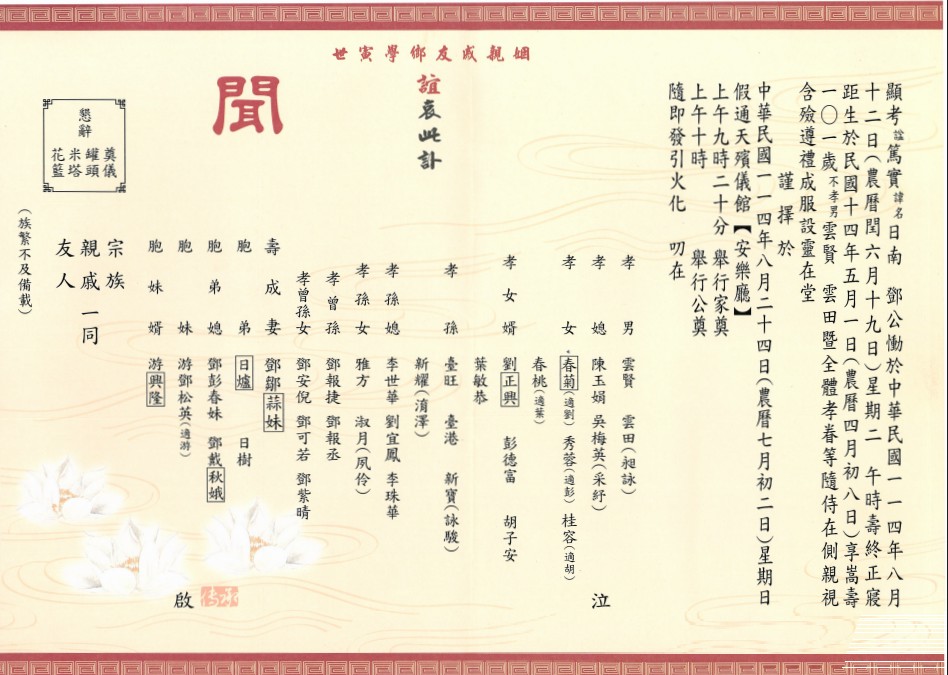 顯考諡篤實諱名日南　鄧公慟於中華民國一一四年八月
十二日（農曆閏六月十九日）星期二　午時壽終正寢
距生於民國十四年五月一日（農曆四月初八日）享嵩壽
一〇一歲不孝男雲賢　雲田暨全體孝眷等隨侍在側親視
含殮遵禮成服設靈在堂
謹擇於
中華民國一一四年八月二十四日（農曆七月初二日）星期日
假通天殯儀館【安樂廳】
上午九時二十分　舉行家奠
上午十時　舉行公奠
隨即發引火化　叨在
姻親戚友鄉學寅世
誼哀此訃
聞
孝男　雲賢　雲田（昶詠）
孝媳　陳玉娟　吳梅英（采紓）　泣
孝女　春菊（適劉）　秀蓉（適彭）　桂容（適胡）
春桃（適葉）
孝女婿　劉正興　彭德富　胡子安
葉敏恭
孝孫　臺旺　臺港　新寶（詠駿）
新耀（淯澤）
孝孫媳　李世華　劉宜鳳　李珠華
孝孫女　雅方　淑月（夙伶）
孝曾孫　鄧報捷　鄧報丞
孝曾孫女　鄧安倪　鄧可若　鄧紫晴
壽成妻　鄧鄒蒜妹
胞弟　日爐　日樹
胞弟媳　鄧彭春妹　鄧戴秋娥
胞妹　游鄧松英（適游）
胞妹婿　游興隆
宗族
親戚一同
友人
啟
傳承
（族繁不及備載）
懇辭
奠儀
罐頭
米塔
花籃